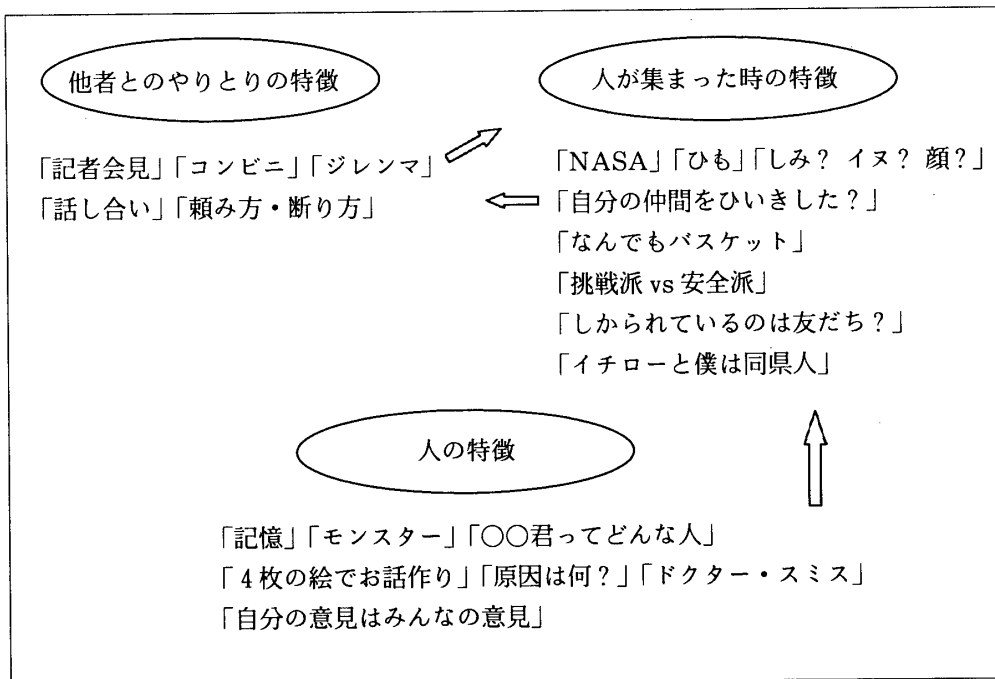 他者とのやりとりの特徴
「記者会見」「コンビニ」「ジレンマ」
「話し合い」「頼み方・断り方」
人が集まった時の特徴
「NASA」「ひも」「しみ? イヌ? 顔?」
「自分の仲間をひいきした?」
「なんでもバスケット」
「挑戦派 vs 安全派」
「しかられているのは友だち?」
「イチローと僕は同県人」
人の特徴
「記憶」「モンスター」「○○君ってどんな人」
「4枚の絵でお話作り」「原因は何?」「ドクター・スミス」
「自分の意見はみんなの意見」